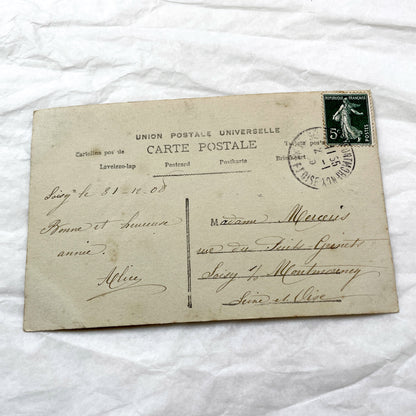 UNION POSTALE UNIVERSELLE
CARTE POSTALE
Cartolina pos de
Levelezo-lap
Postcard
Postkarte
Briefkaart
REPUBLIQUE FRANÇAISE
5
POSTES
Soisy le 31-12-08
Bonne et heureuse
année.
Alice
Madame Mercier
rue du Puits Grenet
Soisy s/ Montmorency
Seine et Oise